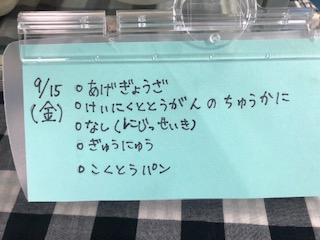 9/15
(金)
○あげぎょうざ
○けいにくととうがんのちゅうかに
○なし(にじっせいき)
○ぎゅうにゅう
○こくとうパン